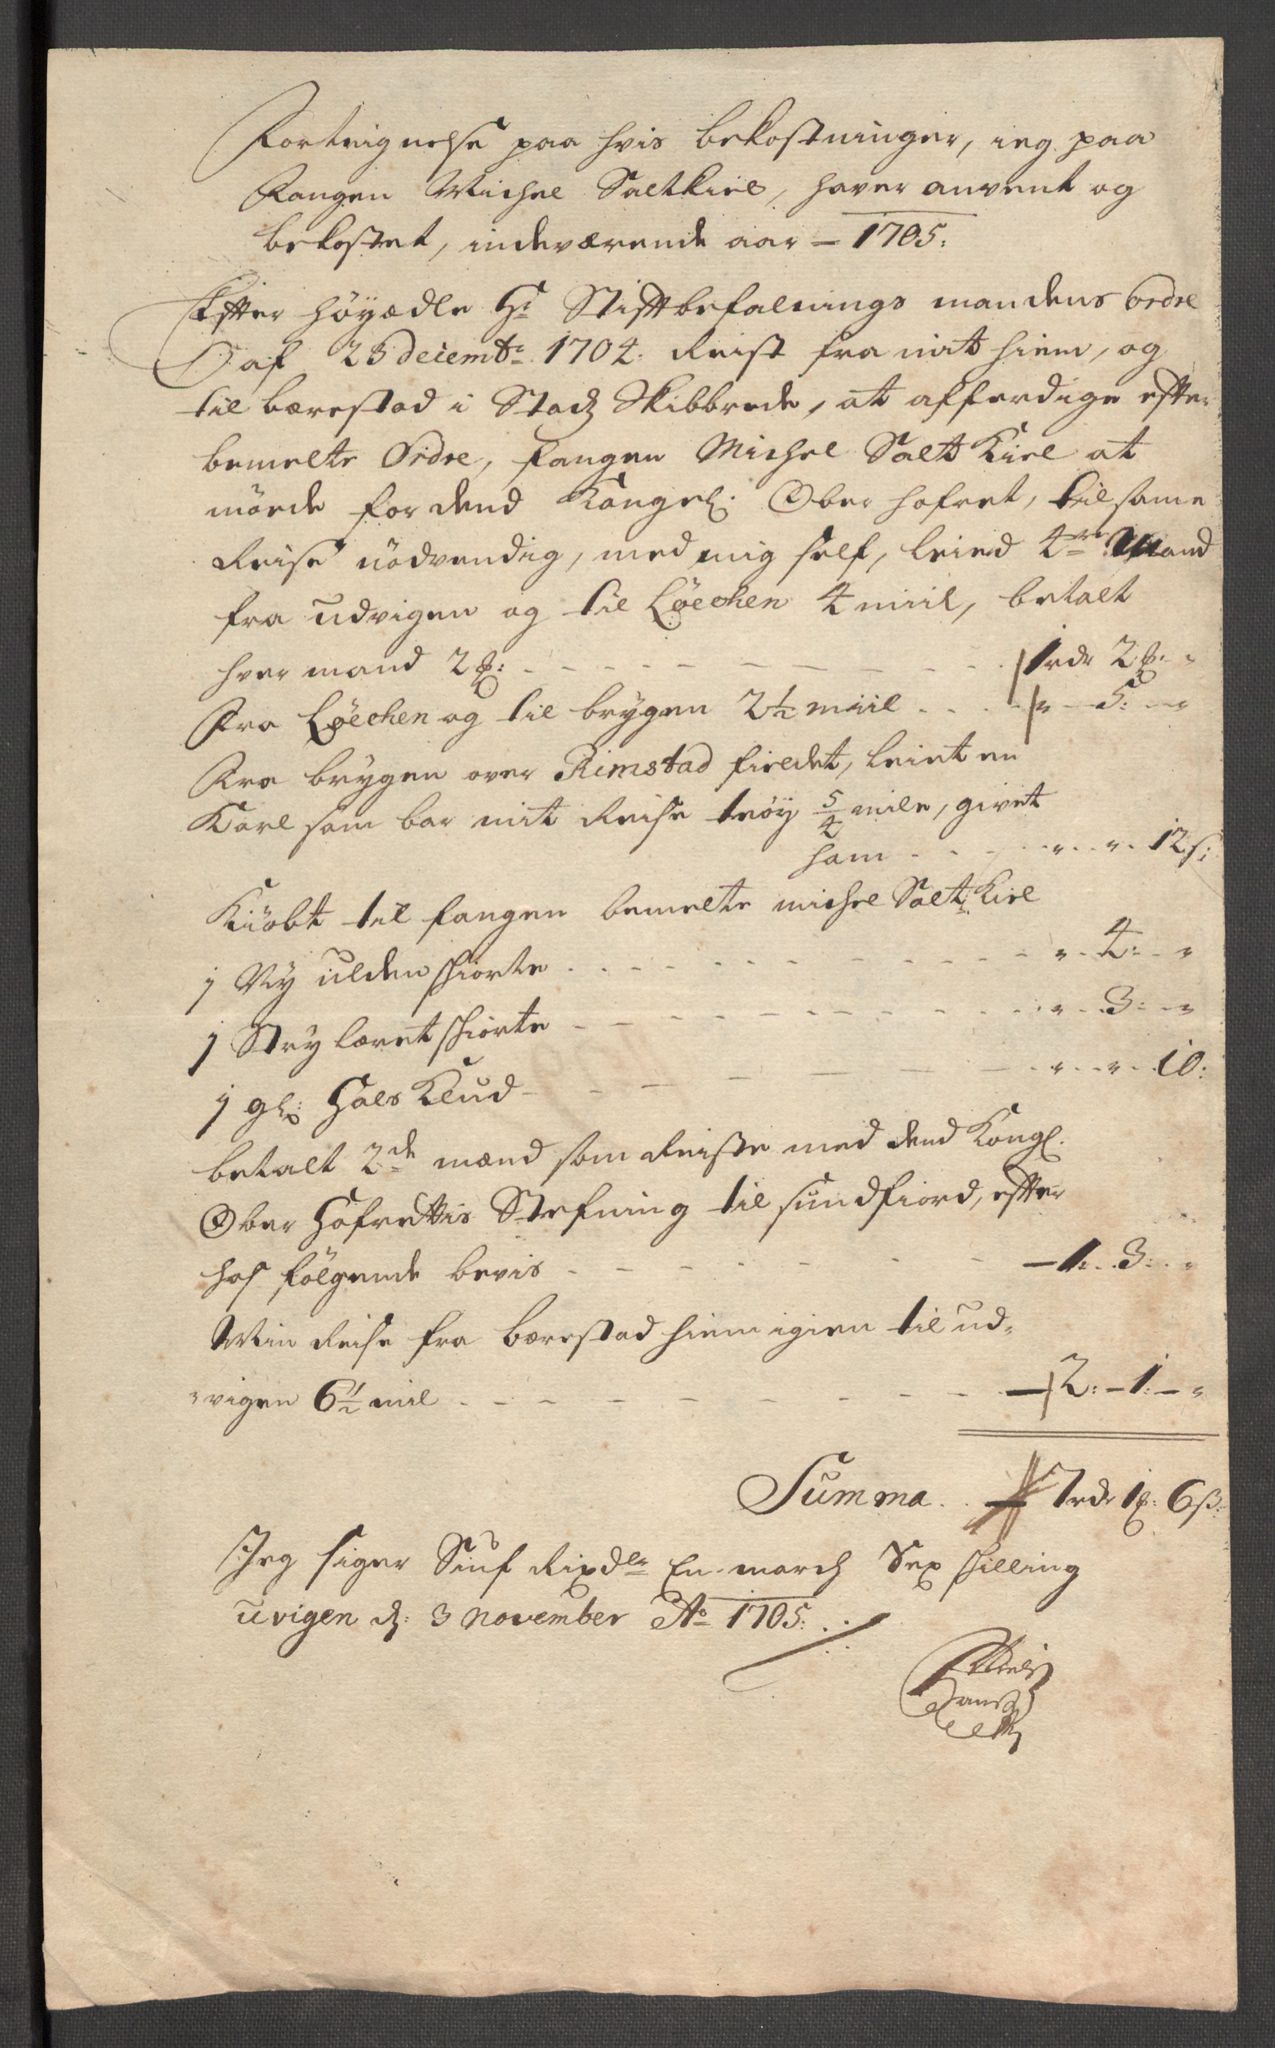 Forteignelse paa hvis bekostninger, ieg paa
Fangen Michel Saltkiel, haver anvent og
bekostet, indeværende aar – 1705:
Effter höyædle Hr Stiftbefalnings mandens ordre
af 23 decembr 1704. Reist fra mit hiem, og
til bærestad i Stadz Skibbrede, at afferdige effter
bemelte Ordre, fangen Michel Salt Kiel at
möede for dend Kongel: Ober hofret, til same
Reise nödvendig, med mig self, leied 4re Mand
fra udvigen og til Löechen 4 miil, betalt
hver mand 2 ℔: – – – 1 rdr 2 ℔: "
Fra Löechen og til brygen 2½ miil . . . " – 5: – "
Fra brygen over Rimstad fieldet, leiet en
Karl som bar mit Reise töy 5/4 mile, givet
ham . . . " . . " . 12 s:
Kiöbt til fangen bemelte michel Salt Kiel
1 Ny ulden skiorte . . . " . 4: . "
1 Stry læret skiorte – – – " . . 3: . "
1 gl: Hals Klud – – – " . . " . 10:
betalt 2de mænd som Reiste med dend Kongl.
Ober Hofrettis Stefning til sundfiord, effter
hos fölgende bevis – – – 1: . 3: . "
Min Reise fra bærestad hiem igien til ud-
vigen 6½ mil – – – 2: – 1: – "
Summa . . 7 rdr 1 ℔: 6 ß:
Jeg siger Siuf Rixdlr En march Sex skilling
uvigen d: 3 November Ao 1705:
Niels
Hanss